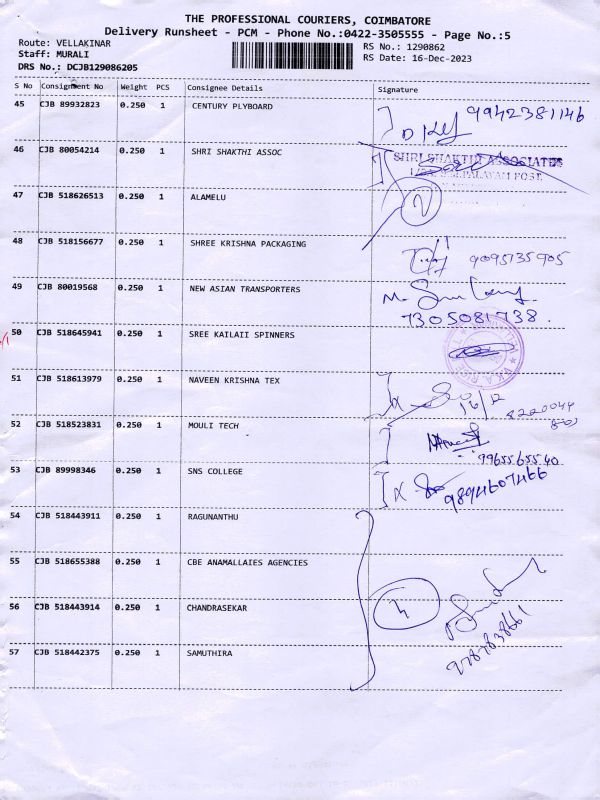 THE PROFESSIONAL COURIERS, COIMBATORE
Delivery Runsheet - PCM - Phone No.:0422-3505555 - Page No.:5
Route: VELLAKINAR
Staff: MURALI
DRS No.: DCJB129086205
RS No.: 1290862
RS Date: 16-Dec-2023
S No Consignment No Weight PCS Consignee Details Signature
45 CJB 89932823 0.250 1 CENTURY PLYBOARD 9942381146
46 CJB 80054214 0.250 1 SHRI SHAKTHI ASSOC SHRI SHAKTHI ASSOCIATES
47 CJB 518626513 0.250 1 ALAMELU
48 CJB 518156677 0.250 1 SHREE KRISHNA PACKAGING 9095735905
49 CJB 80019568 0.250 1 NEW ASIAN TRANSPORTERS
7305081738.
50 CJB 518645941 0.250 1 SREE KAILAII SPINNERS
51 CJB 518613979 0.250 1 NAVEEN KRISHNA TEX 16/12
52 CJB 518523831 0.250 1 MOULI TECH
9965565540
53 CJB 89998346 0.250 1 SNS COLLEGE 9894607466
54 CJB 518443911 0.250 1 RAGUNANTHU
55 CJB 518655388 0.250 1 CBE ANAMALLAIES AGENCIES
56 CJB 518443914 0.250 1 CHANDRASEKAR 4
57 CJB 518442375 0.250 1 SAMUTHIRA 9787838661